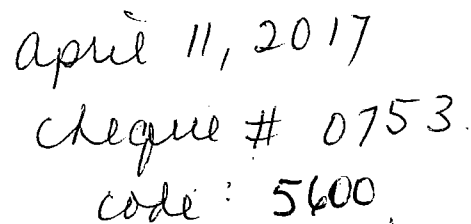 april 11, 2017
cheque # 0753.
code: 5600.